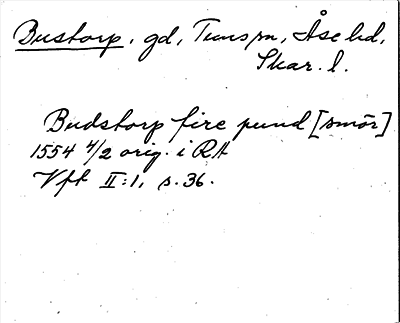 Bustorp. gd, Tuns sn, Åse hd,
Skar. l.
Budstorp fire pund [smör]
1554 4/2 orig. i RA
Vft II:1, s. 36.